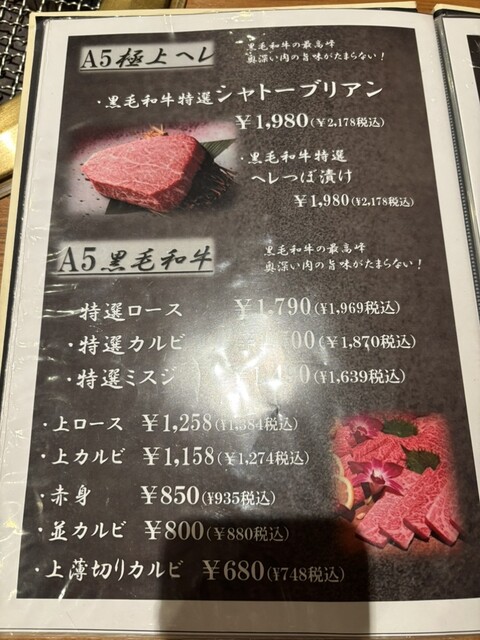 A5極上ヘレ
黒毛和牛の最高峰
奥深い肉の旨味がたまらない！
・黒毛和牛特選シャトーブリアン
￥1,980(￥2,178税込)
・黒毛和牛特選
ヘレつぼ漬け
￥1,980(￥2,178税込)
A5黒毛和牛
黒毛和牛の最高峰
奥深い肉の旨味がたまらない！
・特選ロース ￥1,790(￥1,969税込)
・特選カルビ (￥1,870税込)
・特選ミスジ (￥1,639税込)
・上ロース ￥1,258(￥1,384税込)
・上カルビ ￥1,158(￥1,274税込)
・赤身 ￥850(￥935税込)
・並カルビ ￥800(￥880税込)
・上薄切りカルビ ￥680(￥748税込)